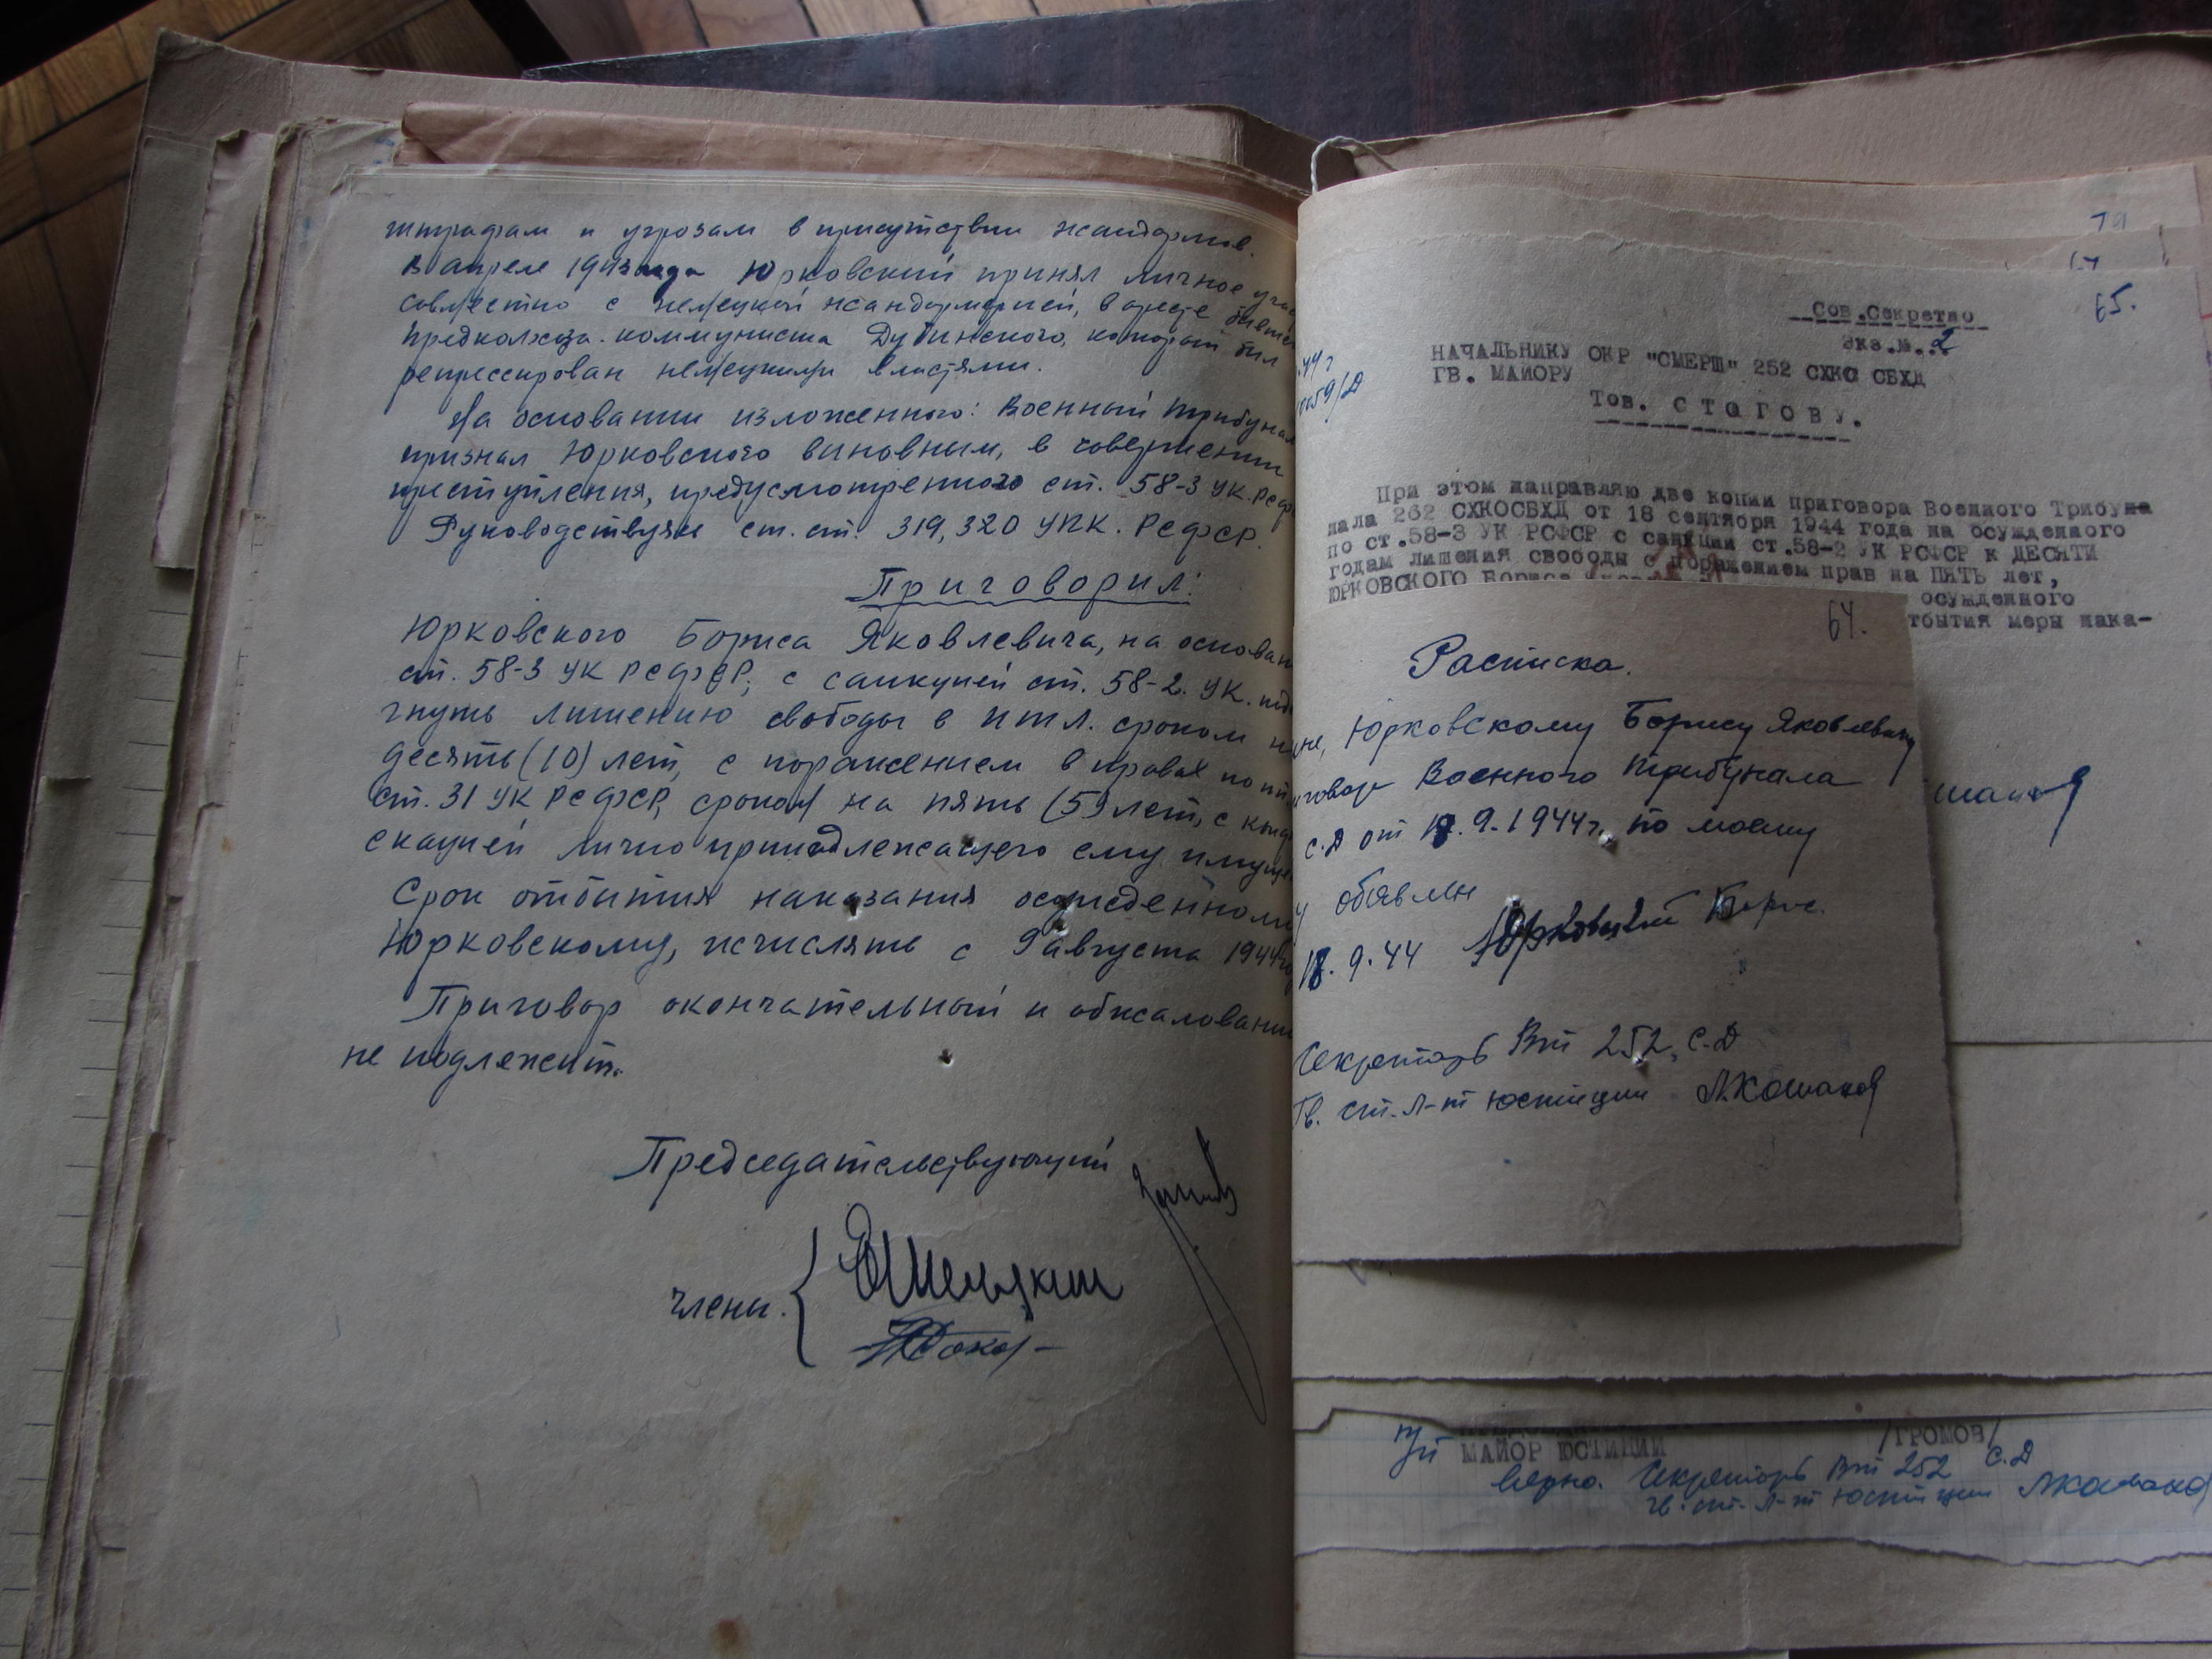 штрафам и угрозам в присутствии жандармов.
В апреле 1943 года Юрковский принял личное учас
совместно с немецкой жандармерией, в аресте бывше
предколхоза. коммуниста Дубинского, который был
репрессирован немецкими властями.
На основании изложенного: Военный трибунал
признал Юрковского виновным, в совершении
преступления, предусмотренного ст. 58-3 УК. РСФС
Руководствуясь ст. ст. 319, 320 УПК. РСФСР.
Приговорил:
Юрковского Бориса Яковлевича, на основан
ст. 58-3 УК РСФСР, с санкцией ст. 58-2. УК. под
гнуть лишению свободы в ИТЛ. сроком на
десять (10) лет, с поражением в правах по
ст. 31 УК РСФСР, сроком на пять (5) лет, с конфи
скацией лично принадлежащего ему имуще
Срок отбытия наказания осужденному
Юрковскому, исчислять с 9 августа 1944 го
Приговор окончательный и обжалованию
не подлежит.
Председательствующий
члены.
79
65.
Сов.Секретно
Экз.№.2
НАЧАЛЬНИКУ ОКР "СМЕРШ" 252 СХКС СБХД
ГВ. МАЙОРУ
Тов. СТОГОВУ.
44 г
0059/Д
При этом направляю две копии приговора Военного Трибуна
нала 262 СХКОСБХД от 18 сентября 1944 года на осужденного
по ст.58-3 УК РСФСР с санкции ст.58-2 УК РСФСР к ДЕСЯТИ
годам лишения свободы с поражением прав на ПЯТЬ лет,
ЮРКОВСКОГО Бориса
осужденного
тбытия меры нака-
64.
Расписка.
мне, Юрковскому Борису Яковлевичу
иговор Военного трибунала
С.Д от 18.9.1944г, по моему
у объявлен
18.9.44 Юрковский Борис.
Секретарь ВТ 252, С.Д
Гв. ст. Л-т юстиции Лкошаков
МАЙОР ЮСТИЦИИ /ГРОМОВ/
Верно. Секретарь ВТ 252 С.Д
гв. ст. Л-т юстиции Лкошаков